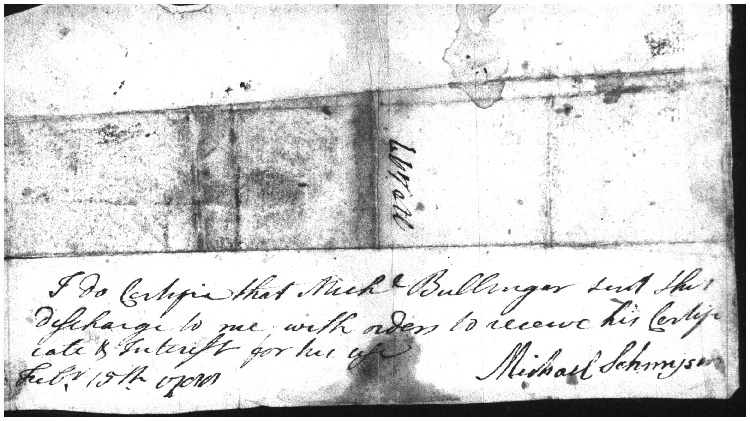 I do Certifie that Mich.l Bullinger sent this
discharge to me with orders to receive his Certifi
cate & Interest for his use
Feb.y 15th
Michael Schmyser